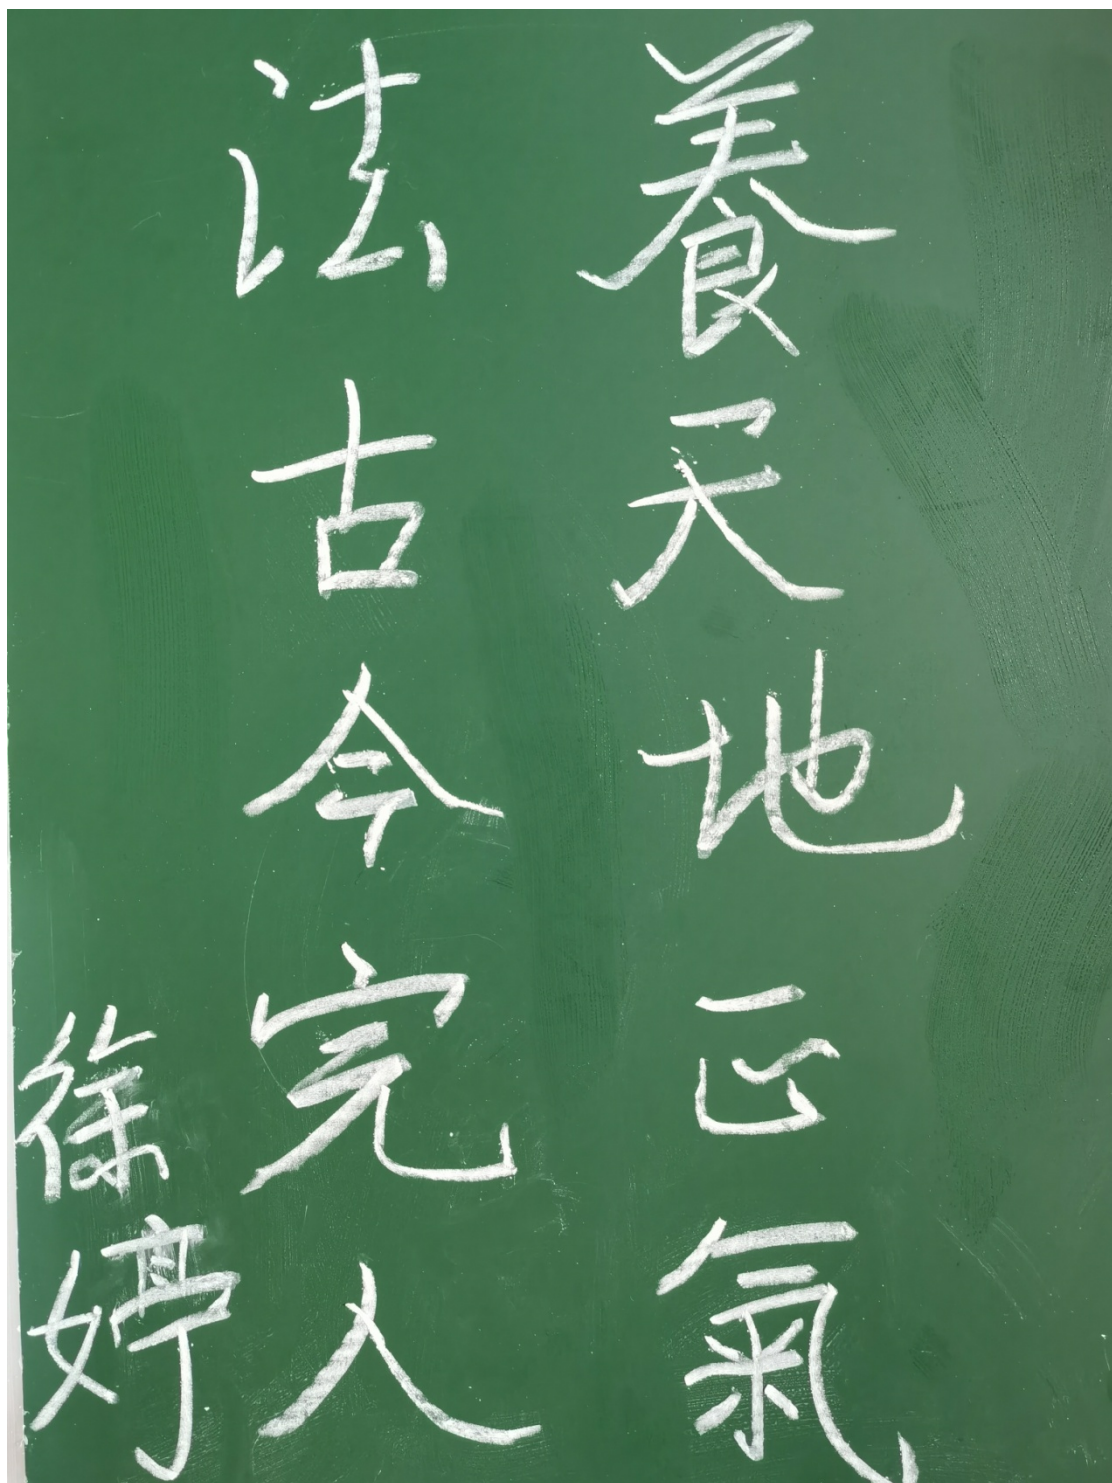 養天地正氣
法古今完人
徐婷